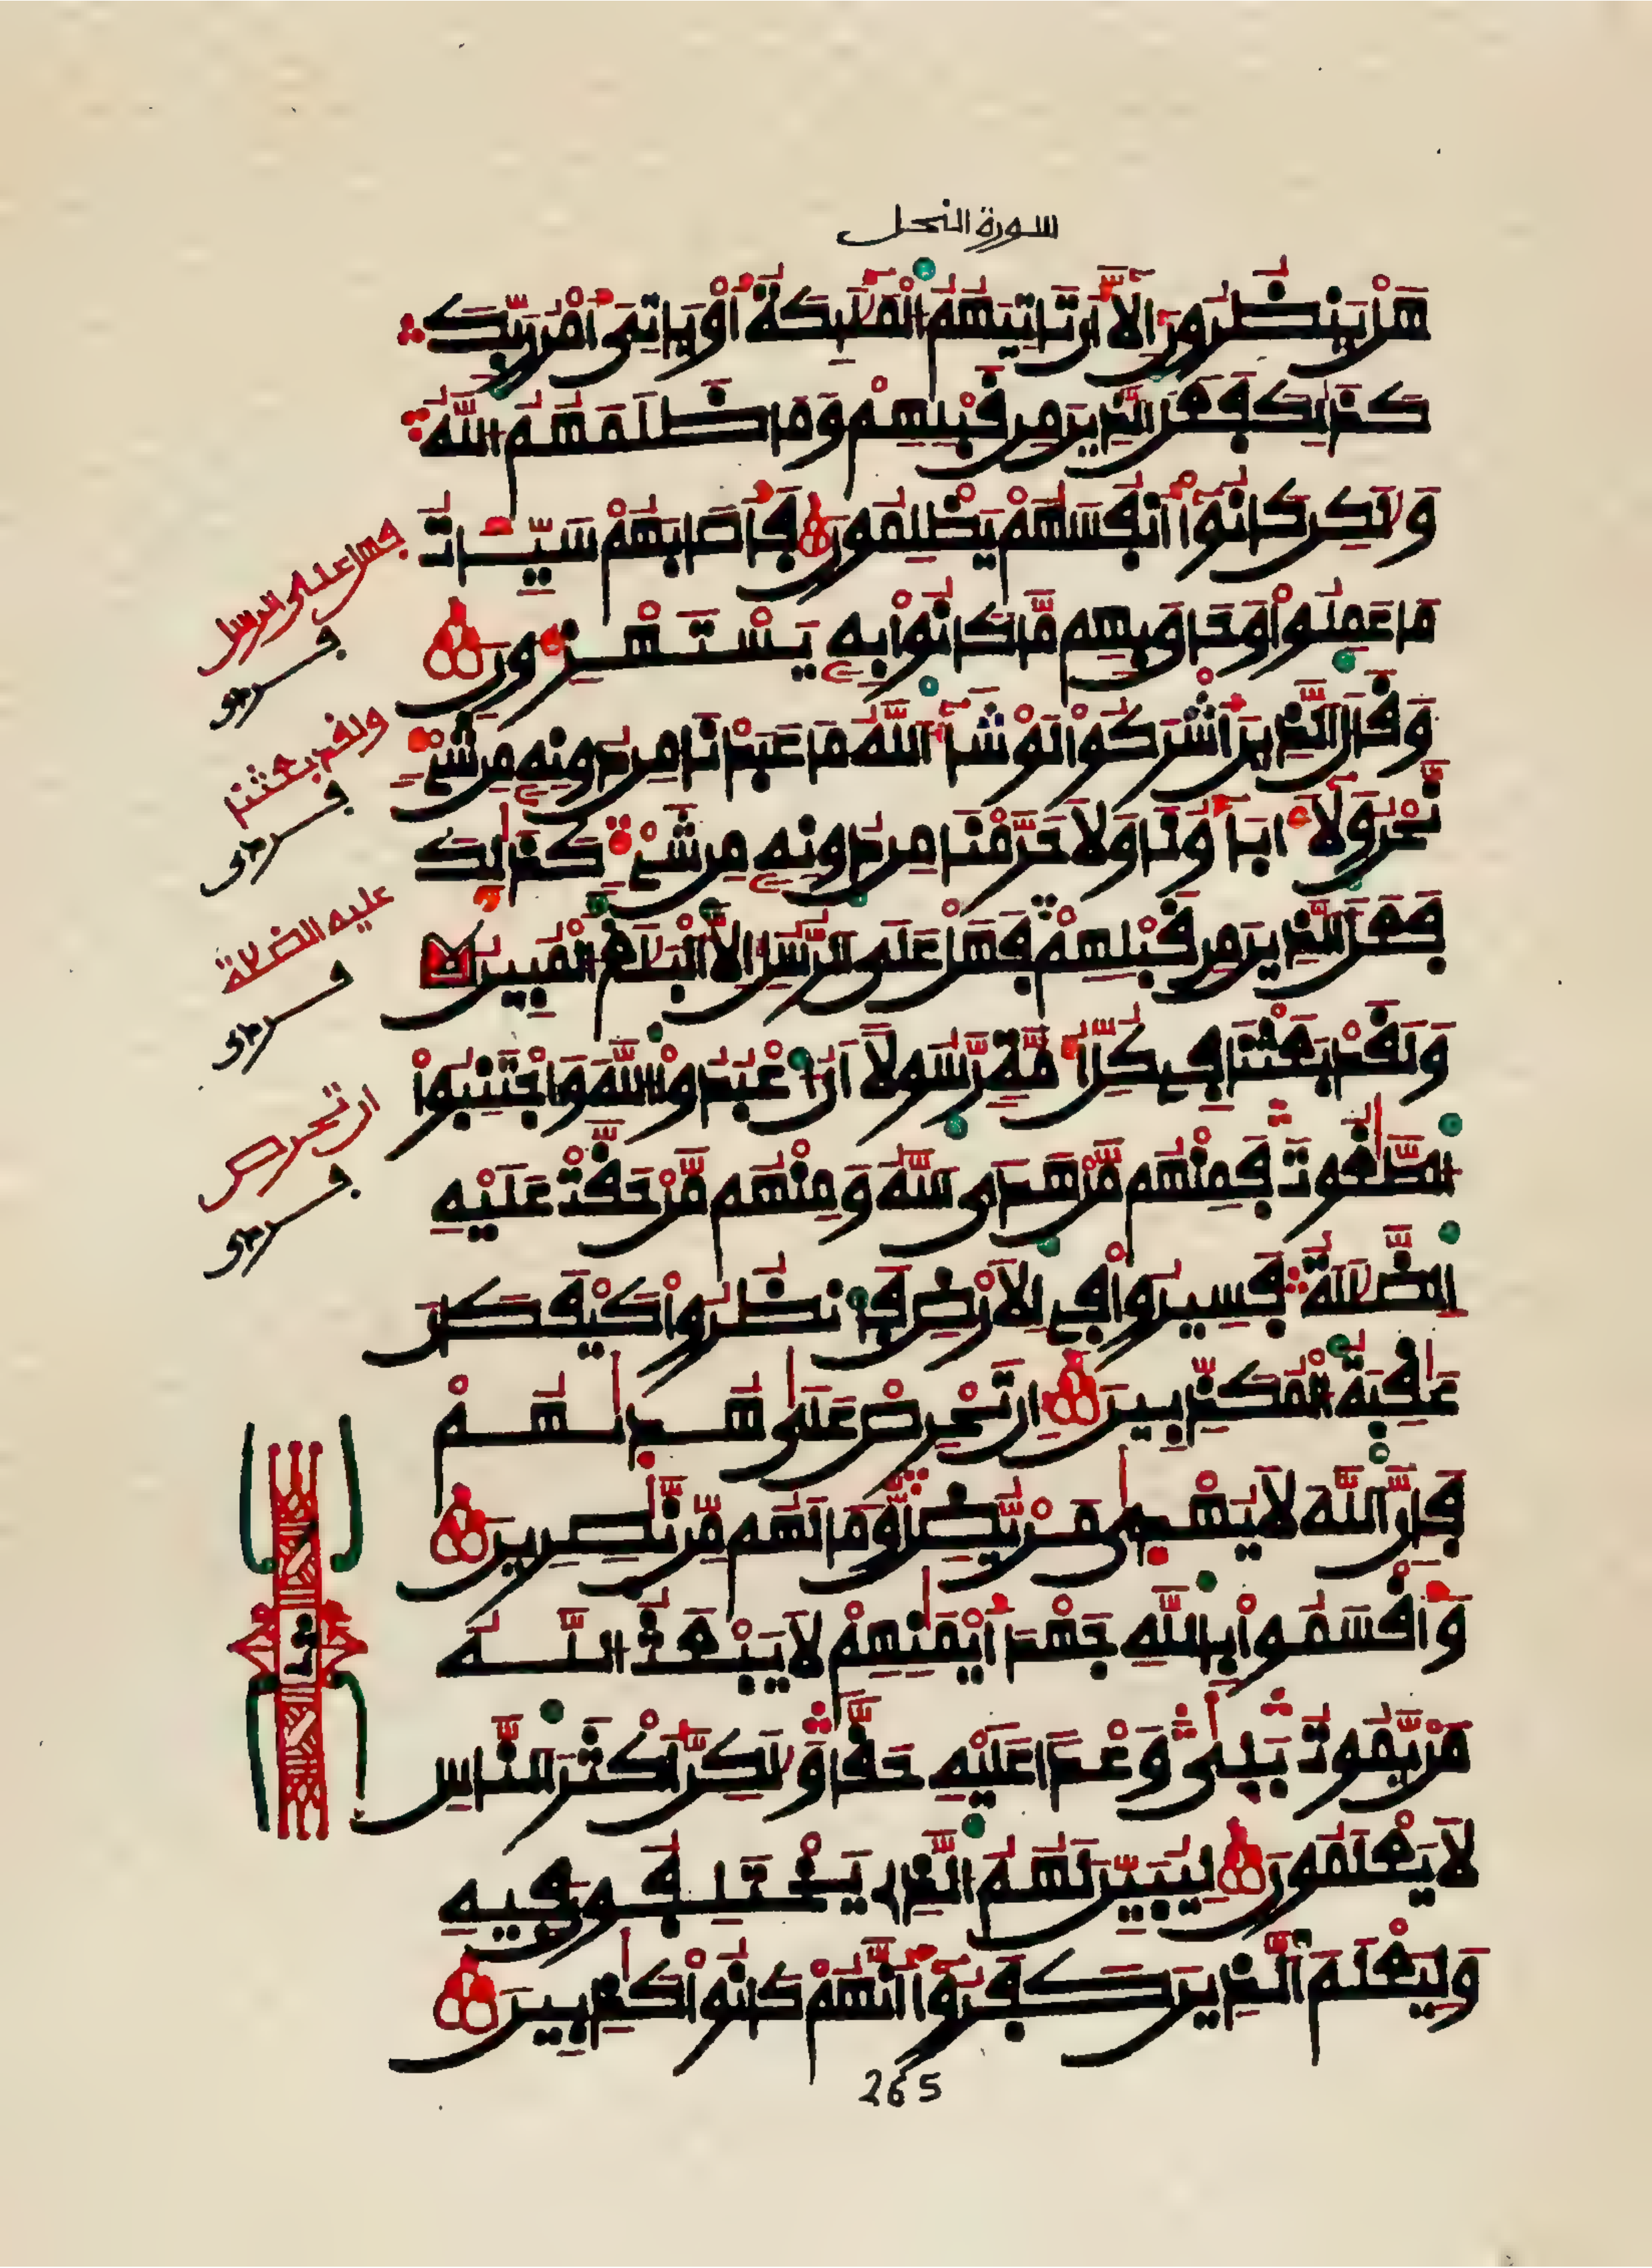 سورة النحل
هَلْ يَنظُرُونَ إِلَّا أَن تَاتِيَهُمُ الْمَلَٰٓئِكَةُ أَوْ يَاتِيَ أَمْرُ رَبِّكَ
كَذَٰلِكَ فَعَلَ الذِينَ مِن قَبْلِهِمْ وَمَا ظَلَمَهُمُ اللَّهُ
وَلَٰكِن كَانُوٓا أَنفُسَهُمْ يَظْلِمُونَ فَأَصَابَهُمْ سَيِّـَٔاتُ
مَا عَمِلُوا وَحَاقَ بِهِم مَّا كَانُوا بِهِۦ يَسْتَهْزِءُونَ
وَقَالَ الذِينَ أَشْرَكُوا لَوْ شَآءَ اللَّهُ مَا عَبَدْنَا مِن دُونِهِۦ مِن شَيْءٍ
نَّحْنُ وَلَآ ءَابَآؤُنَا وَلَا حَرَّمْنَا مِن دُونِهِۦ مِن شَيْءٍ كَذَٰلِكَ
فَعَلَ الذِينَ مِن قَبْلِهِمْ فَهَلْ عَلَى الرُّسُلِ إِلَّا الْبَلَٰغُ الْمُبِينُ
وَلَقَدْ بَعَثْنَا فِي كُلِّ أُمَّةٍ رَّسُولًا أَنُ اعْبُدُوا اللَّهَ وَاجْتَنِبُوا
الطَّٰغُوتَ فَمِنْهُم مَّنْ هَدَى اللَّهُ وَمِنْهُم مَّنْ حَقَّتْ عَلَيْهِ
الضَّلَٰلَةُ فَسِيرُوا فِي الْأَرْضِ فَانظُرُوا كَيْفَ كَانَ
عَٰقِبَةُ الْمُكَذِّبِينَ إِن تَحْرِصْ عَلَىٰ هُدَىٰهُمْ
فَإِنَّ اللَّهَ لَا يُهْدَىٰ مَنْ يُّضِلُّ وَمَا لَهُم مِّن نَّٰصِرِينَ
وَأَقْسَمُوا بِاللَّهِ جَهْدَ أَيْمَٰنِهِمْ لَا يَبْعَثُ اللَّهُ
مَنْ يَّمُوتُ بَلَىٰ وَعْدًا عَلَيْهِ حَقًّا وَلَٰكِنَّ أَكْثَرَ النَّاسِ
لَا يَعْلَمُونَ لِيُبَيِّنَ لَهُمُ الذِي يَخْتَلِفُونَ فِيهِ
وَلِيَعْلَمَ الذِينَ كَفَرُوٓا أَنَّهُمْ كَانُوا كَٰذِبِينَ
265
فهل على الرسل
ولقد بعثنا
عليه الضلالة
ان تحرص